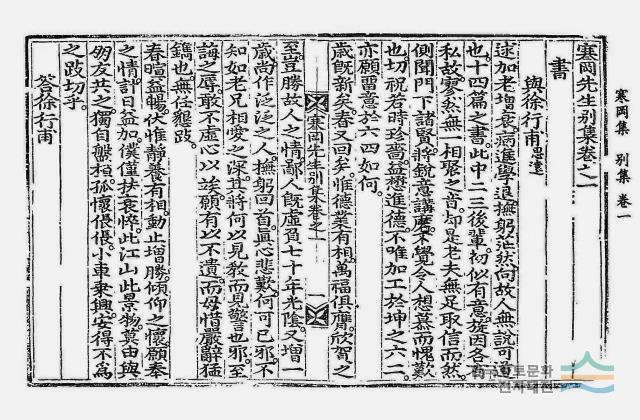 寒岡集 別集 卷一
寒岡先生別集卷之一
書
與徐行甫思遠
逑加老增衰病進學退撫躬茫然向故人無說可道
也十四篇之書此中二三後輩初似有意旋因各有
私故寥然無一相聚之音却是老夫無足取信而然
側聞門下諸賢將銳意講磨不覺令人想慕而愧歎
也切祝若時珍嗇益懋進德不唯加工於坤之六二
亦願留意於六四如何
歲旣新矣春又回矣惟德業有相萬福俱膺欣賀之
寒岡先生別集卷之一 一
至豈勝故人之情鄙人旣虛負七十年光陰又增一
歲尚作泛泛之人撫躬回首眞心悲歎何可已耶不
知如老兄相愛之深其將何以見敎而見警也耶至
誨之辱敢不虛心以竢願有以不遺而毋惜嚴辭猛
鐫也無任懇跂
春暄益暢伏惟靜養有相動止增勝傾仰之懷願奉
之情計日益加僕僅扶衰悴此江山此景物莫由與
朋友共之獨自盤桓孤懷倀倀小車乘興安得不爲
之跂切乎
答徐行甫
한국향토문화
전자대전